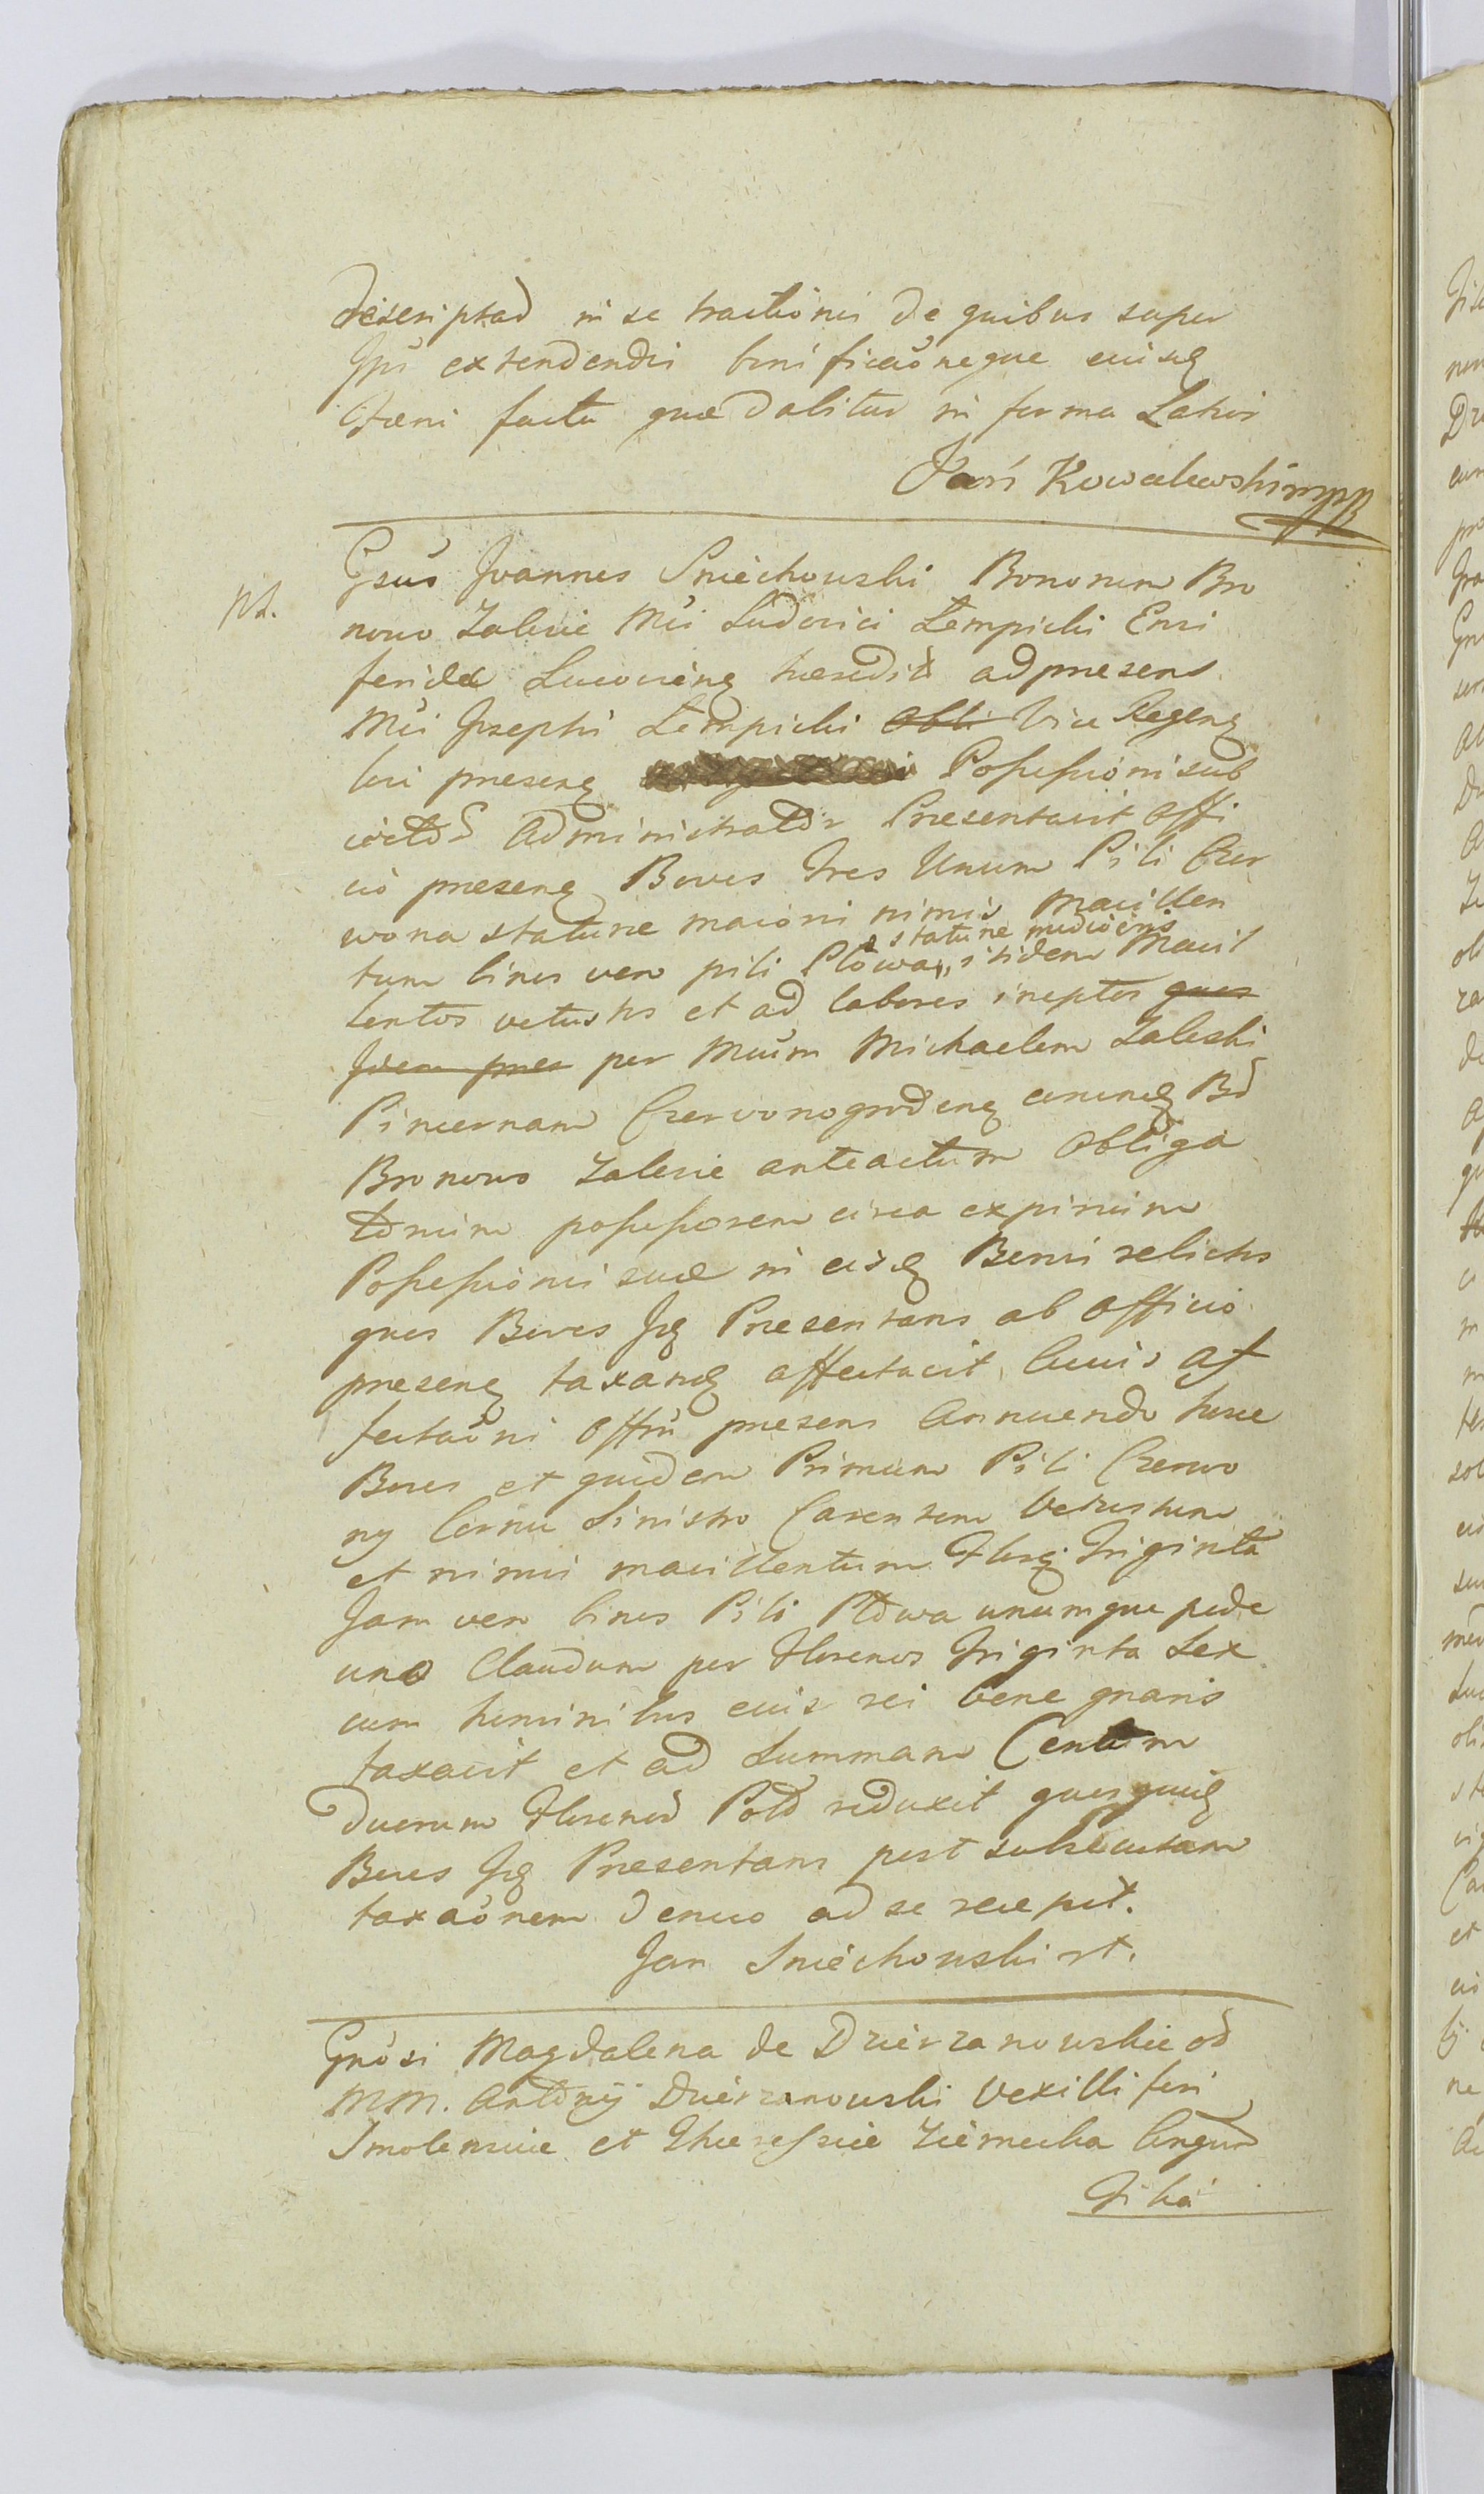 descriptad in se tractionis de quibus super
Ipsi extendendis bonificaónegue eiusq
Faeni facta quae dabitur in forma Latior
Jan Kowalewski mpp
pt.
Gsus Joannes Sniechowski Bonorum Bro
nowo Zalesie Mci Ludovici Lempicki Ensi
feridae Lucoviensq haeredit ad praesens
Mci Josephi Lempicki Obli Vice Regenq
loci praesenq Possessioni sub
iectod Administrator Praesentavit Offi
cio praesenq Boves Tres Unum Pili Czer
wona staturae maioris nimis Macillen
tum binos vero pili Płowa, itidem Macil
staturae mediocris
lentos vetustos et ad labores ineptos quos
Idem prae per Mcum Michaelem Zaleski
Pincernam Czerwonogrodenq eorumq Bd
Bronowo Zalesie anteactum Obliga
torium possessorem circa expirium
Possessionis suae in eisq Bonis relictos
quos Boves Isq Praesentans ab Officio
praesenq taxandq affectavit, Cuius af
fectaóni Offm praesens Annuendo hosce
Boves et quidem Primum Pili Czerwo
ny Cornu Sinistro Carentem Vetustum
et nimis macillentum Florq Triginta
Jam vero binos Pili Płowa unumque pede
uno Claudum per Florenos Triginta Sex
cum hominibus eius rei bene gnaris
taxavit et ad Summam Centum
duorum Florenod Pold reduxit quosquiq
Boves Isq Praesentans post subsecutam
taxaónem denuo ad se recepit.
Jan Sniechowski st.
Gnósi Magdalena de Dzierzanowskie od
MM. Antonÿ Dzierzanowski Vexilliferi
Smolensciae et Theressiae Ziemecka Congud
Filia